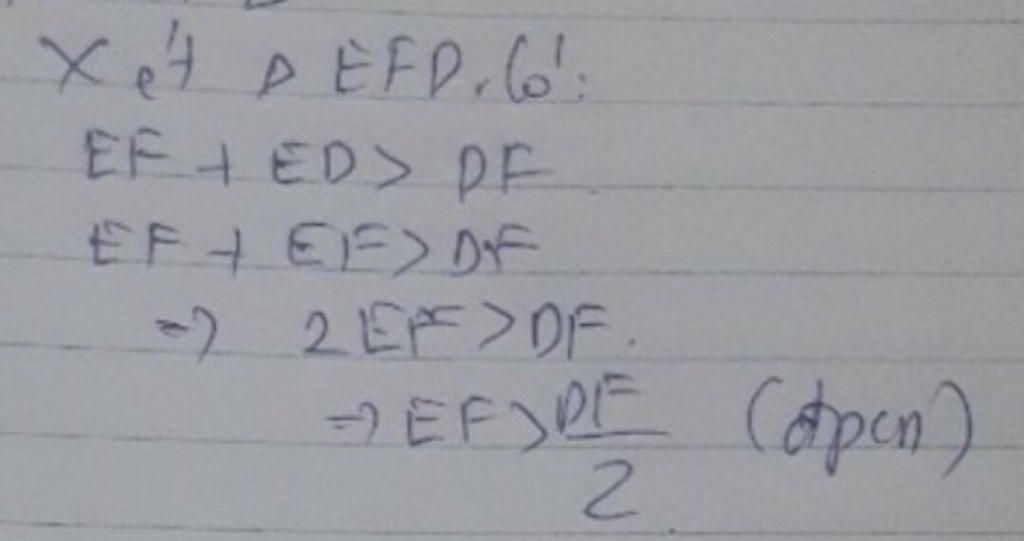 Xét Δ EFD. Có:
EF + ED > DF
EF + EF > DF
=> 2EF > DF.
=> EF > DF/2 (đpcm)